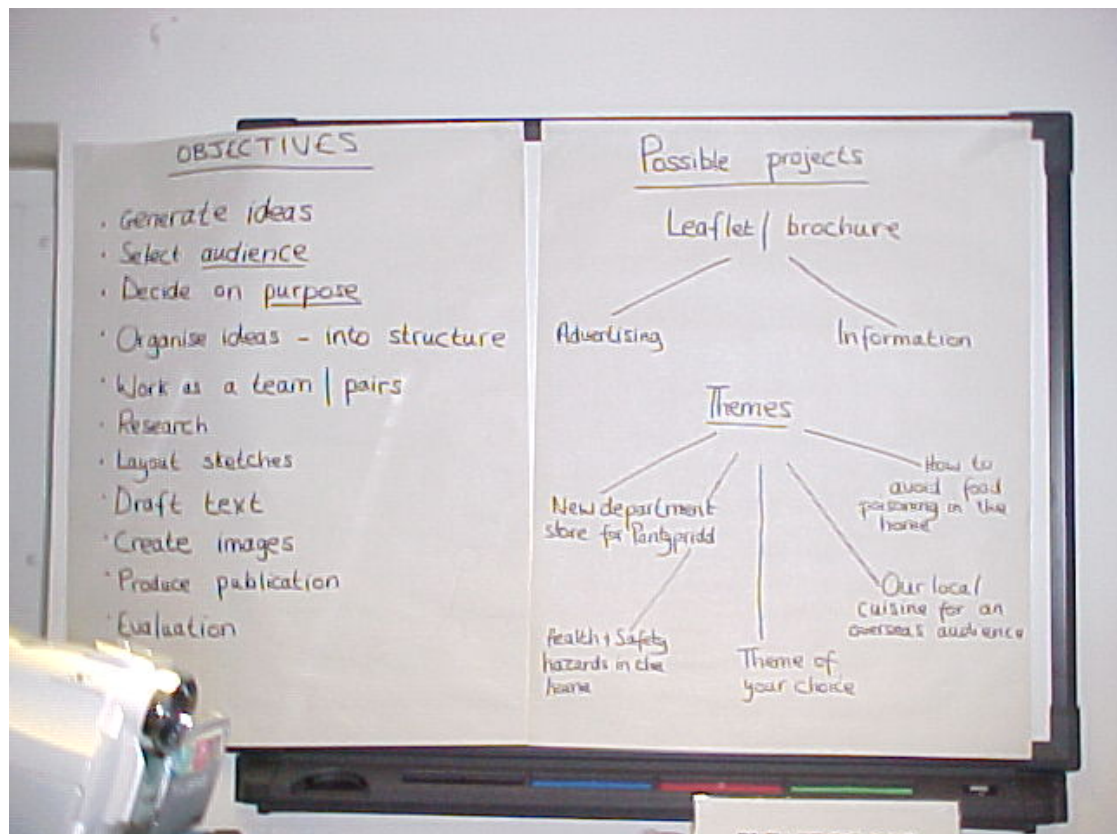 OBJECTIVES
· Generate ideas
· Select audience
· Decide on purpose
· Organise ideas - into structure
· Work as a team / pairs
· Research
· Layout sketches
· Draft text
· Create images
· Produce publication
· Evaluation
Possible projects
Leaflet / brochure
Advertising
Information
Themes
New department
store for Pontypridd
Health + Safety
hazards in the
home
Theme of
your choice
Our local
cuisine for an
overseas audience
How to
avoid food
poisoning in the
home